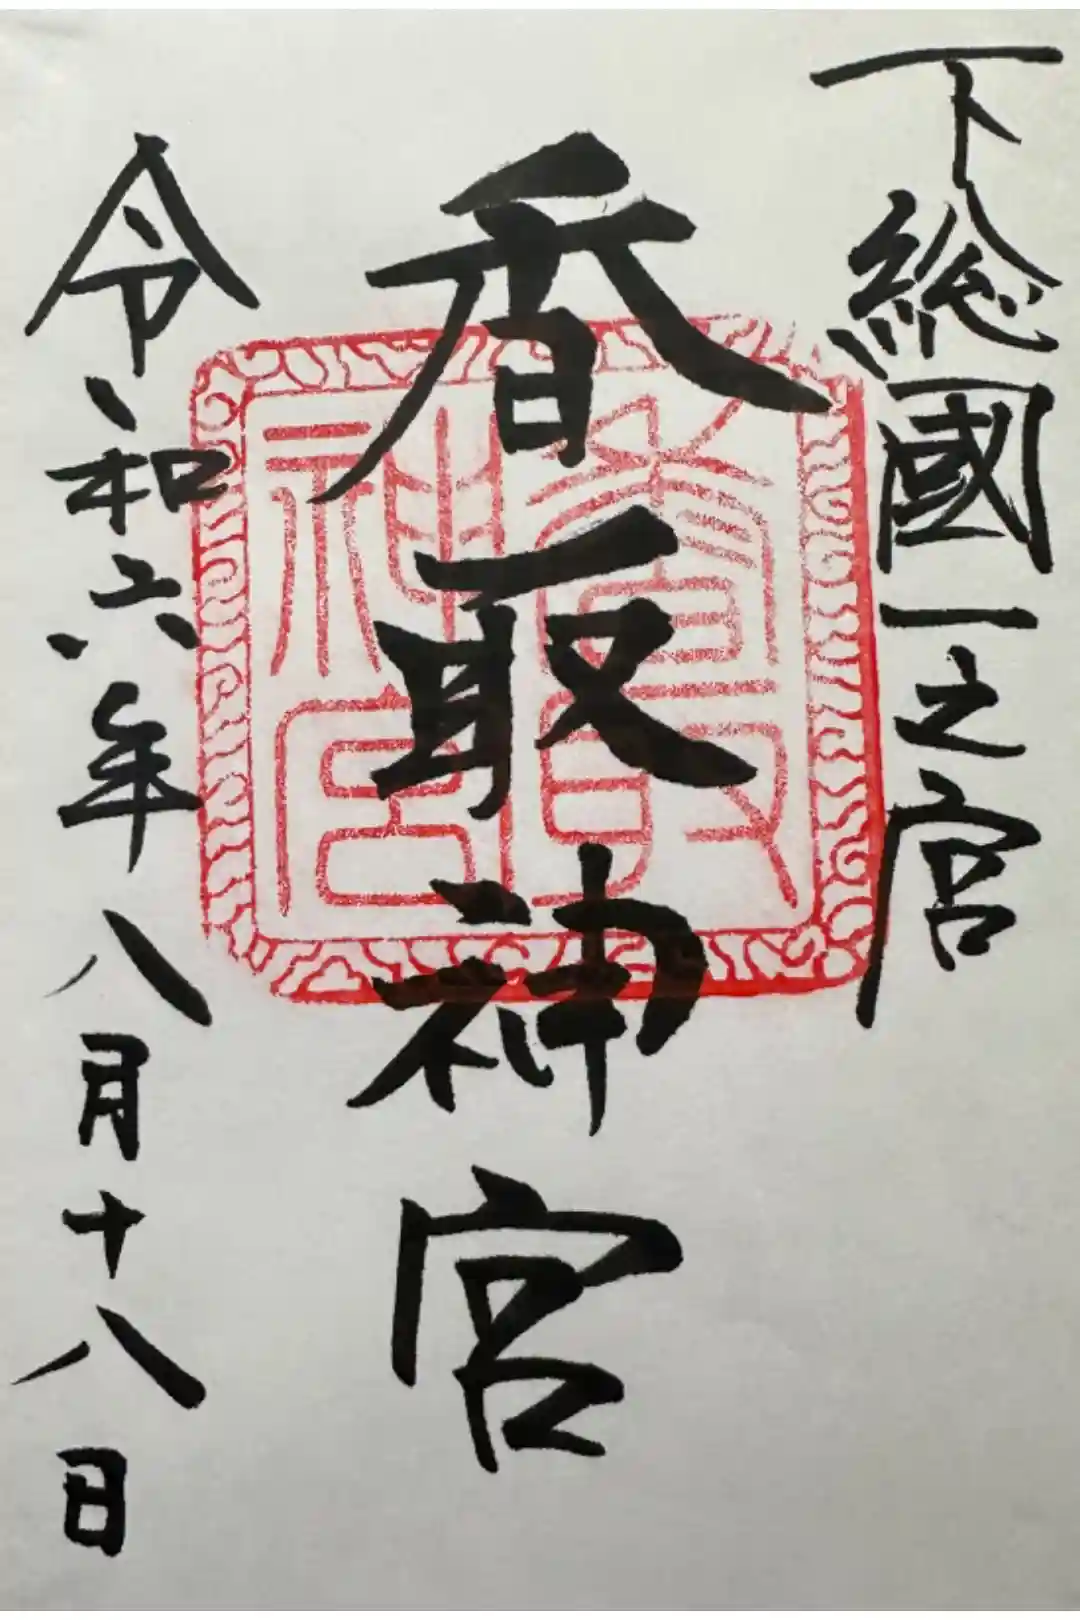 下総國一之宮
香取神宮
令和六年八月十八日
香取
神宮